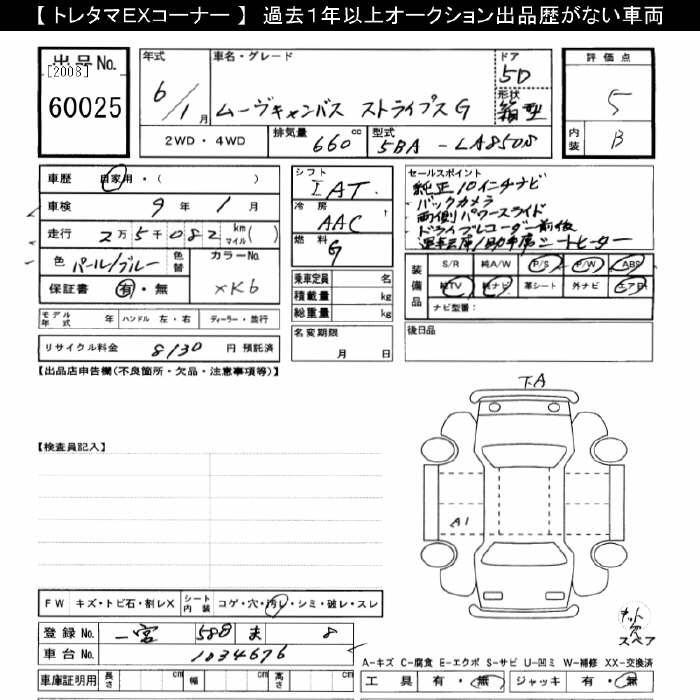 【 トレタマEXコーナー 】 過去1年以上オークション出品歴がない車両
出品No.
[2008]
60025
年式
6/1月
車名・グレード
ムーヴキャンバス ストライプス G
ドア
5D
形状
箱型
評価点
5
内装
B
2WD・4WD
排気量 660 cc
型式 5BA - LA850S
車歴 自家用・( )
車検 9年 1月
走行 2万5千082 km(マイル)
色 パール/ブルー 色替
カラーNo.
XK6
保証書 有・無
シフト
I AT
冷房
AAC
燃料
G
乗車定員 名
積載量 kg
総重量 kg
名変期限
月 日
セールスポイント
純正10インチナビ
バックカメラ
両側パワースライド
ドライブレコーダー前後
運転席/助手席シートヒーター
装備品
S/R 純A/W P/S P/W ABS
純TV 純ナビ 革シート 外ナビ エアB
ナビ型番:
後日品
モデル年式 年 ハンドル 左・右 ディーラー・並行
リサイクル料金 8130 円 預託済
【出品店申告欄(不良箇所・欠品・注意事項等)】
下A
【検査員記入】
A1
FW キズ・トビ石・割レX
シート内装 コゲ・穴・汚レ・シミ・破レ・スレ
登録No. 一宮 588 ま 8
車台No. 1034676
スペア
A-キズ C-腐食 E-エクボ S-サビ U-凹ミ W-補修 XX-交換済
車庫証明用 長さ cm 幅 cm 高さ cm
工具 有・無 ジャッキ 有・無